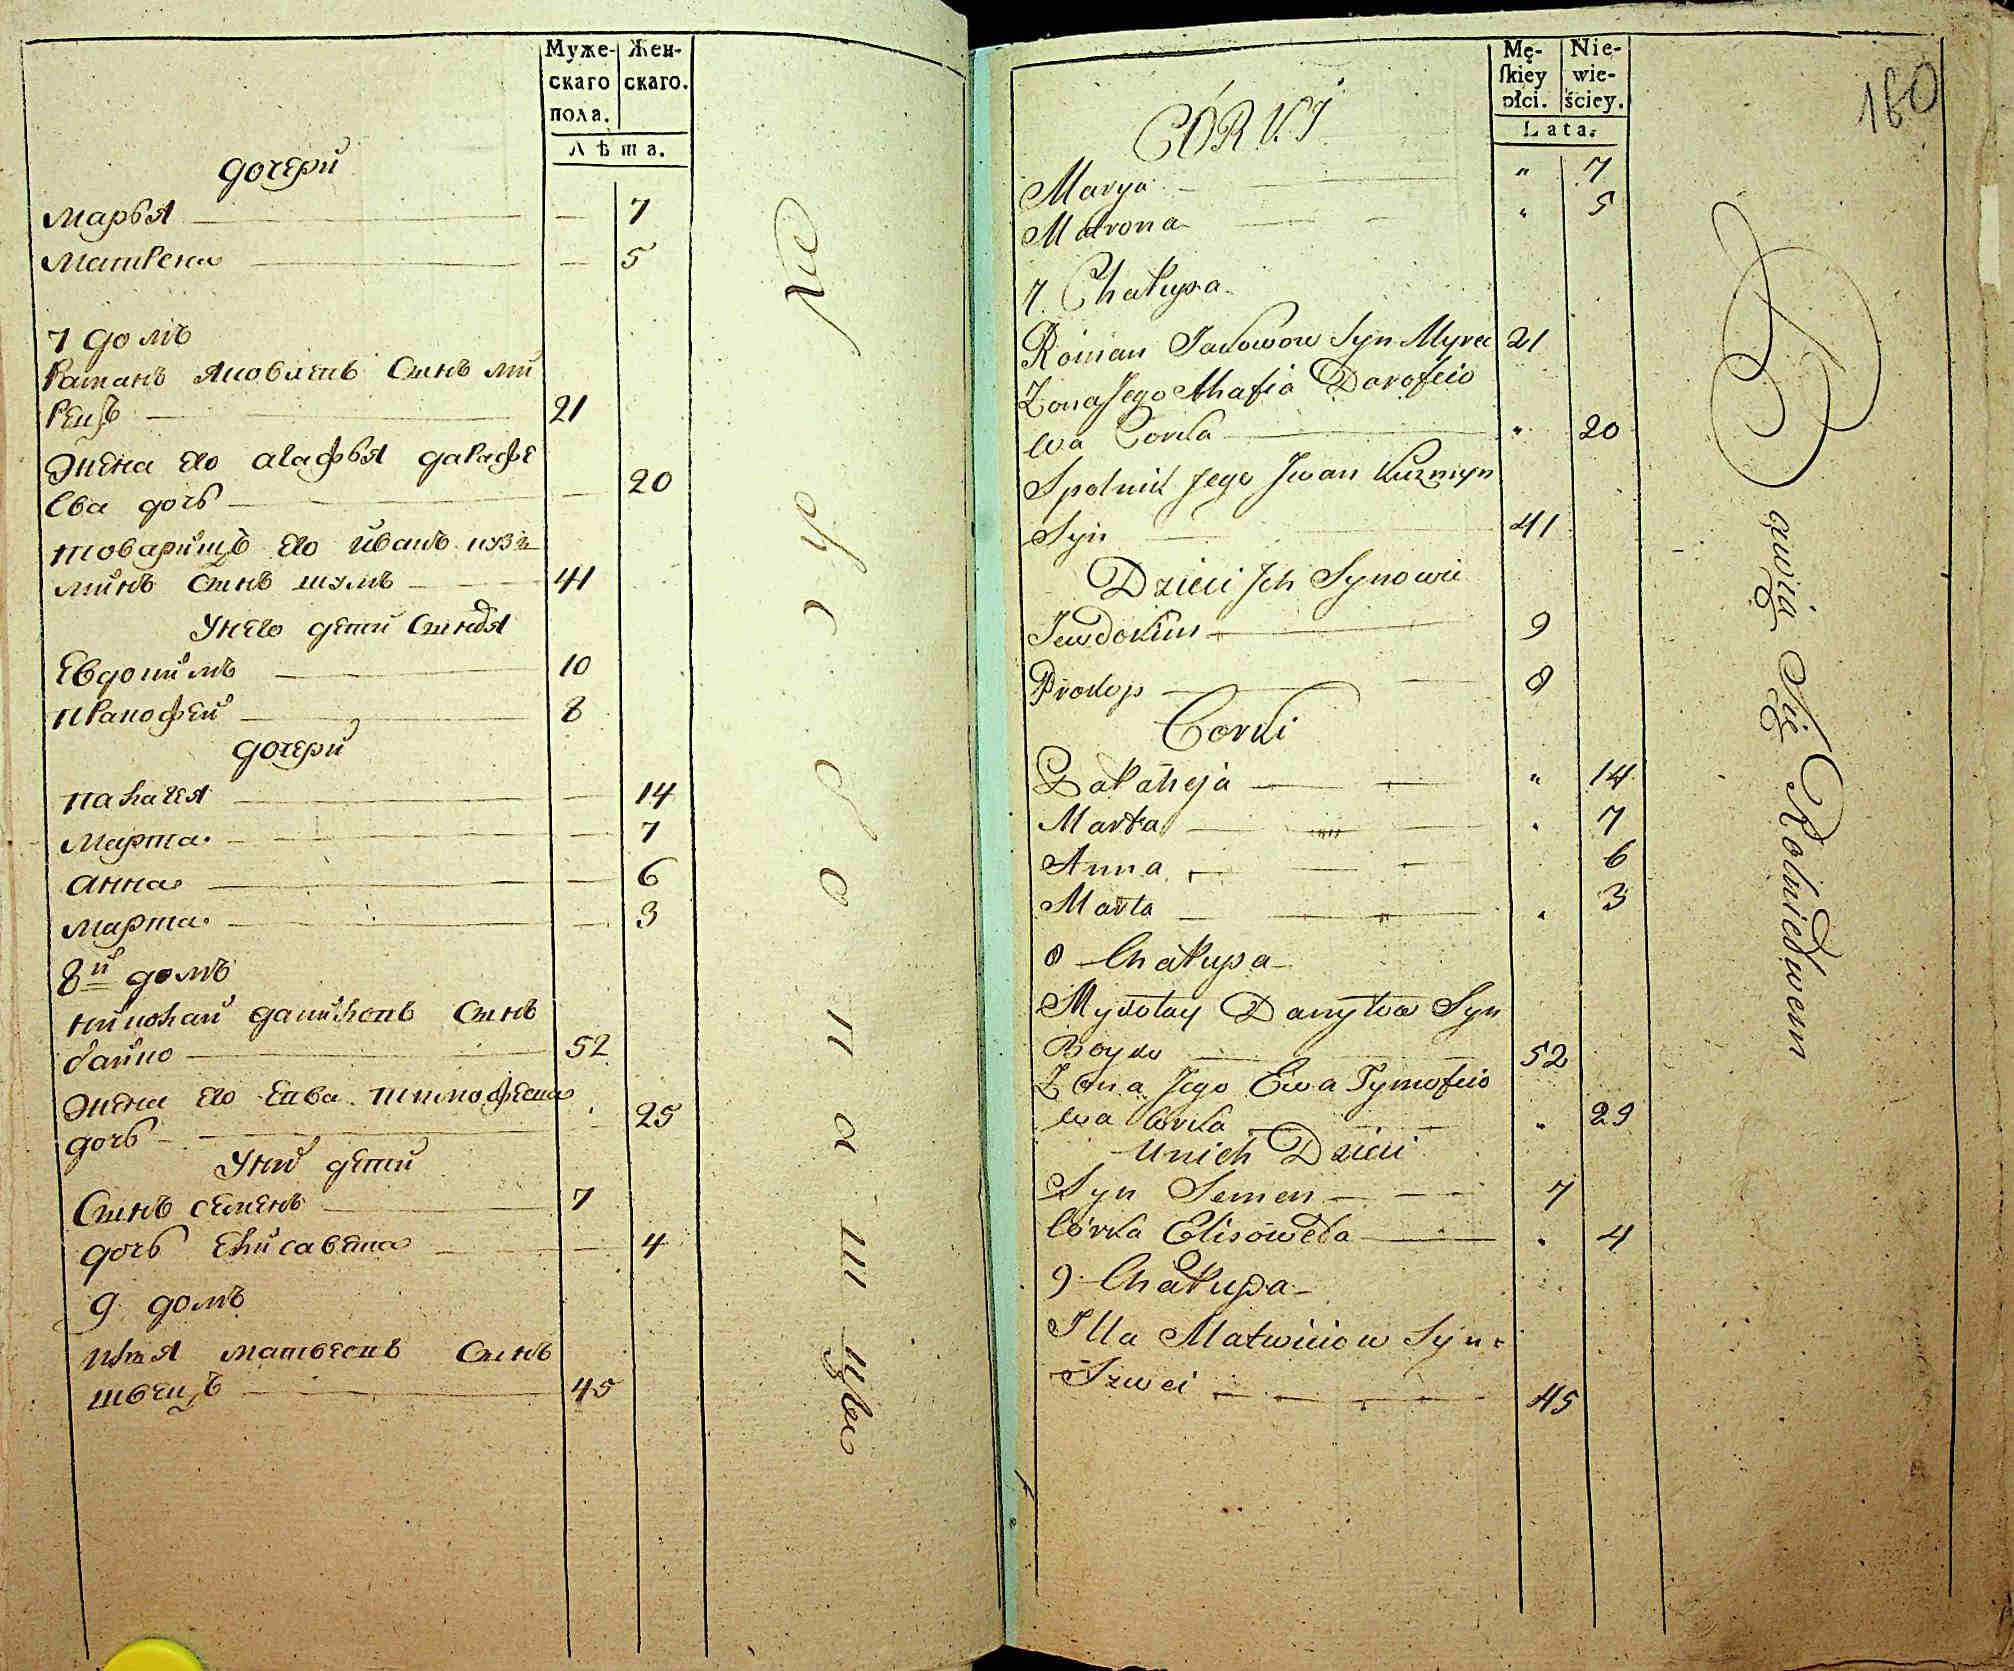 Муже-
скаго
пола.
Жен-
скаго.
Лѣта.
дочери
марья — — 7
матрена — — 5
7 домъ
раманъ яковлевъ сынъ ми
рецъ — 21
жена его агафья дарафе
ева дочь — — 20
товарищъ его иванъ кузь
минъ сынъ — 41
У него дети сыновья
Евдокимъ — 10
пракофей — 8
дочери
палагея — — 14
марта — — 7
анна — — 6
марта — — 3
8й домъ
николай даниловъ сынъ
байко — 52
жена его Евва тимофеева
дочь — 25
У них дети
Сынъ семенъ — 7
дочь елисавета — — 4
9 домъ
илья матвеевъ сынъ
швецъ — 45
Mę-
ſkiey
płci.
Nie-
wie-
ściey.
Lata.
160
CÓRKI
Marya — " 7
Matrona — " 5
7 Chałupa
Roman Jakowow Syn Myrec 21
Zona Jego Ahafia Darofeio
wa Corka — " 20
Spolnik Jego Jwan Kuzmyn
Syn — 41
Dzieci Jch Synowie
Jewdokim — 9
Prokop — 8
Corki
Marta — " 7
Anna — 6
Marta — " 3
8 Chałupa
Mykołay Danyłow Syn
Boyko — 52
Zona Jego Ewa Tymofeio
wa Corka — " 29
U nich Dzieci
Syn Semen — 7
Córka Elisoweta — " 4
9 Chałupa
Illa Matwiiow Syn
Szwei — 45
Bawią Się Rolnictwem